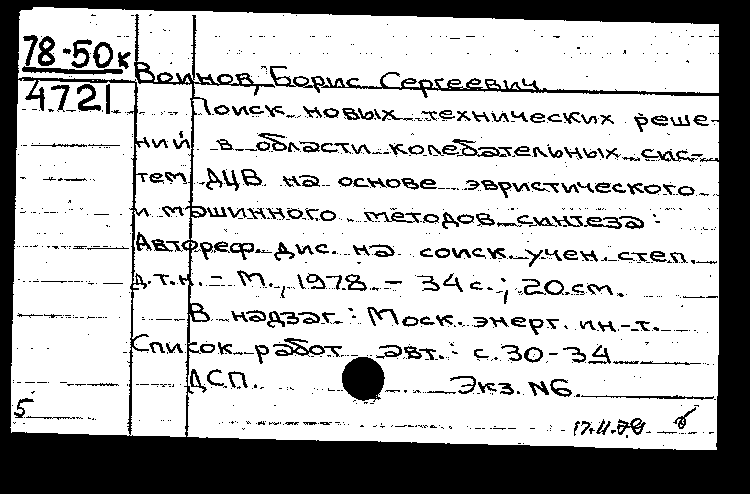 78-50к
4721
Воинов, Борис Сергеевич.
Поиск новых технических реше-
ний в области колебательных сис-
тем ДЦВ на основе эвристического
и машинного методов синтеза:
Автореф. дис. на соиск. учен. степ.
д.т.н. - М., 1978 - 34 с.; 20 см.
В надзаг.: Моск. энерг. ин-т.
Список работ авт.: с. 30-34
ДСП. Экз. N6.
5